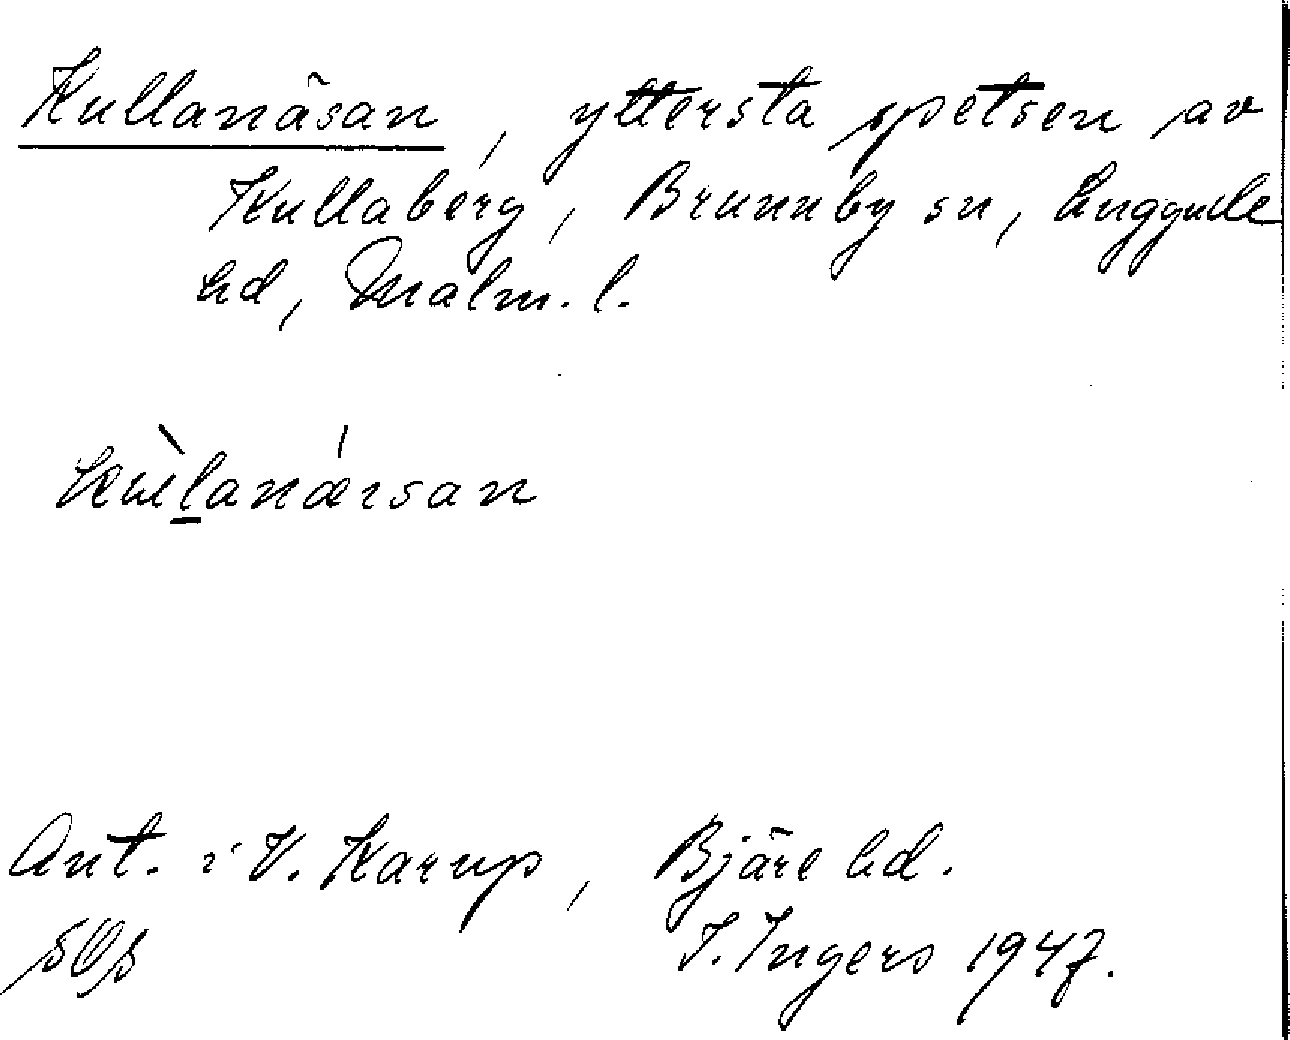 Kullanäsan, yttersta spetsen av
Kullaberg, Brunnby sn, Luggude
hd, Malm. l.
kùlanǽrsan
Ant. i V. Karup, Bjäre hd.
I. Ingers 1947.